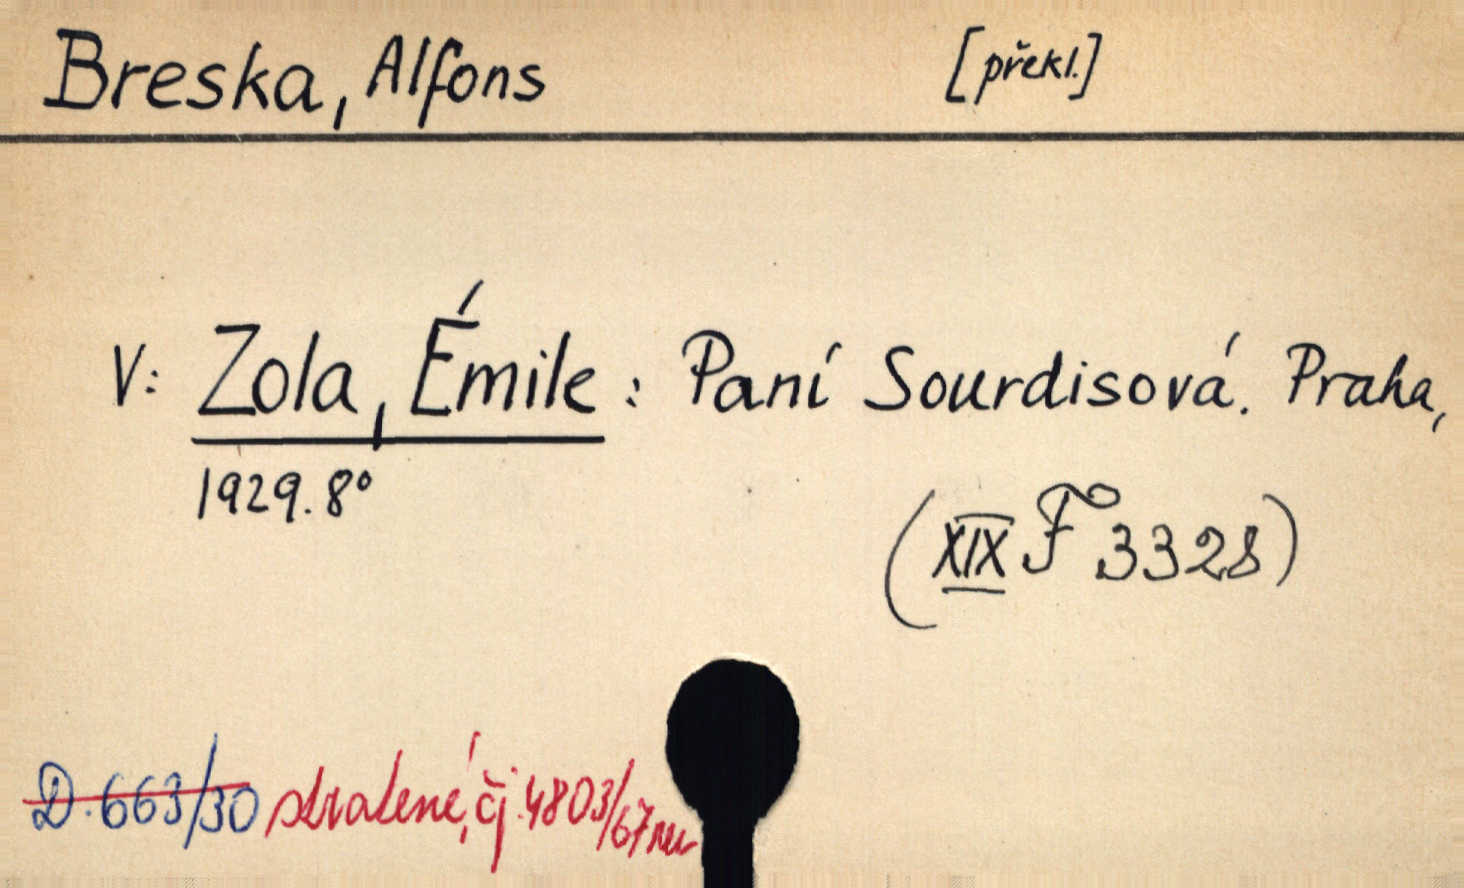 Breska, Alfons [překl.]
V: Zola, Émile : Paní Sourdisová. Praha,
1929. 8°
(XIX F 3328)
D. 663/30 stratené, čj. 4803/67